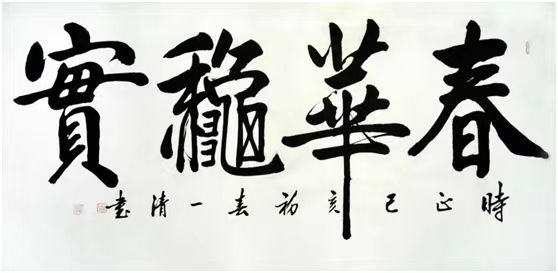 春華龝實
時正己亥初春一清書